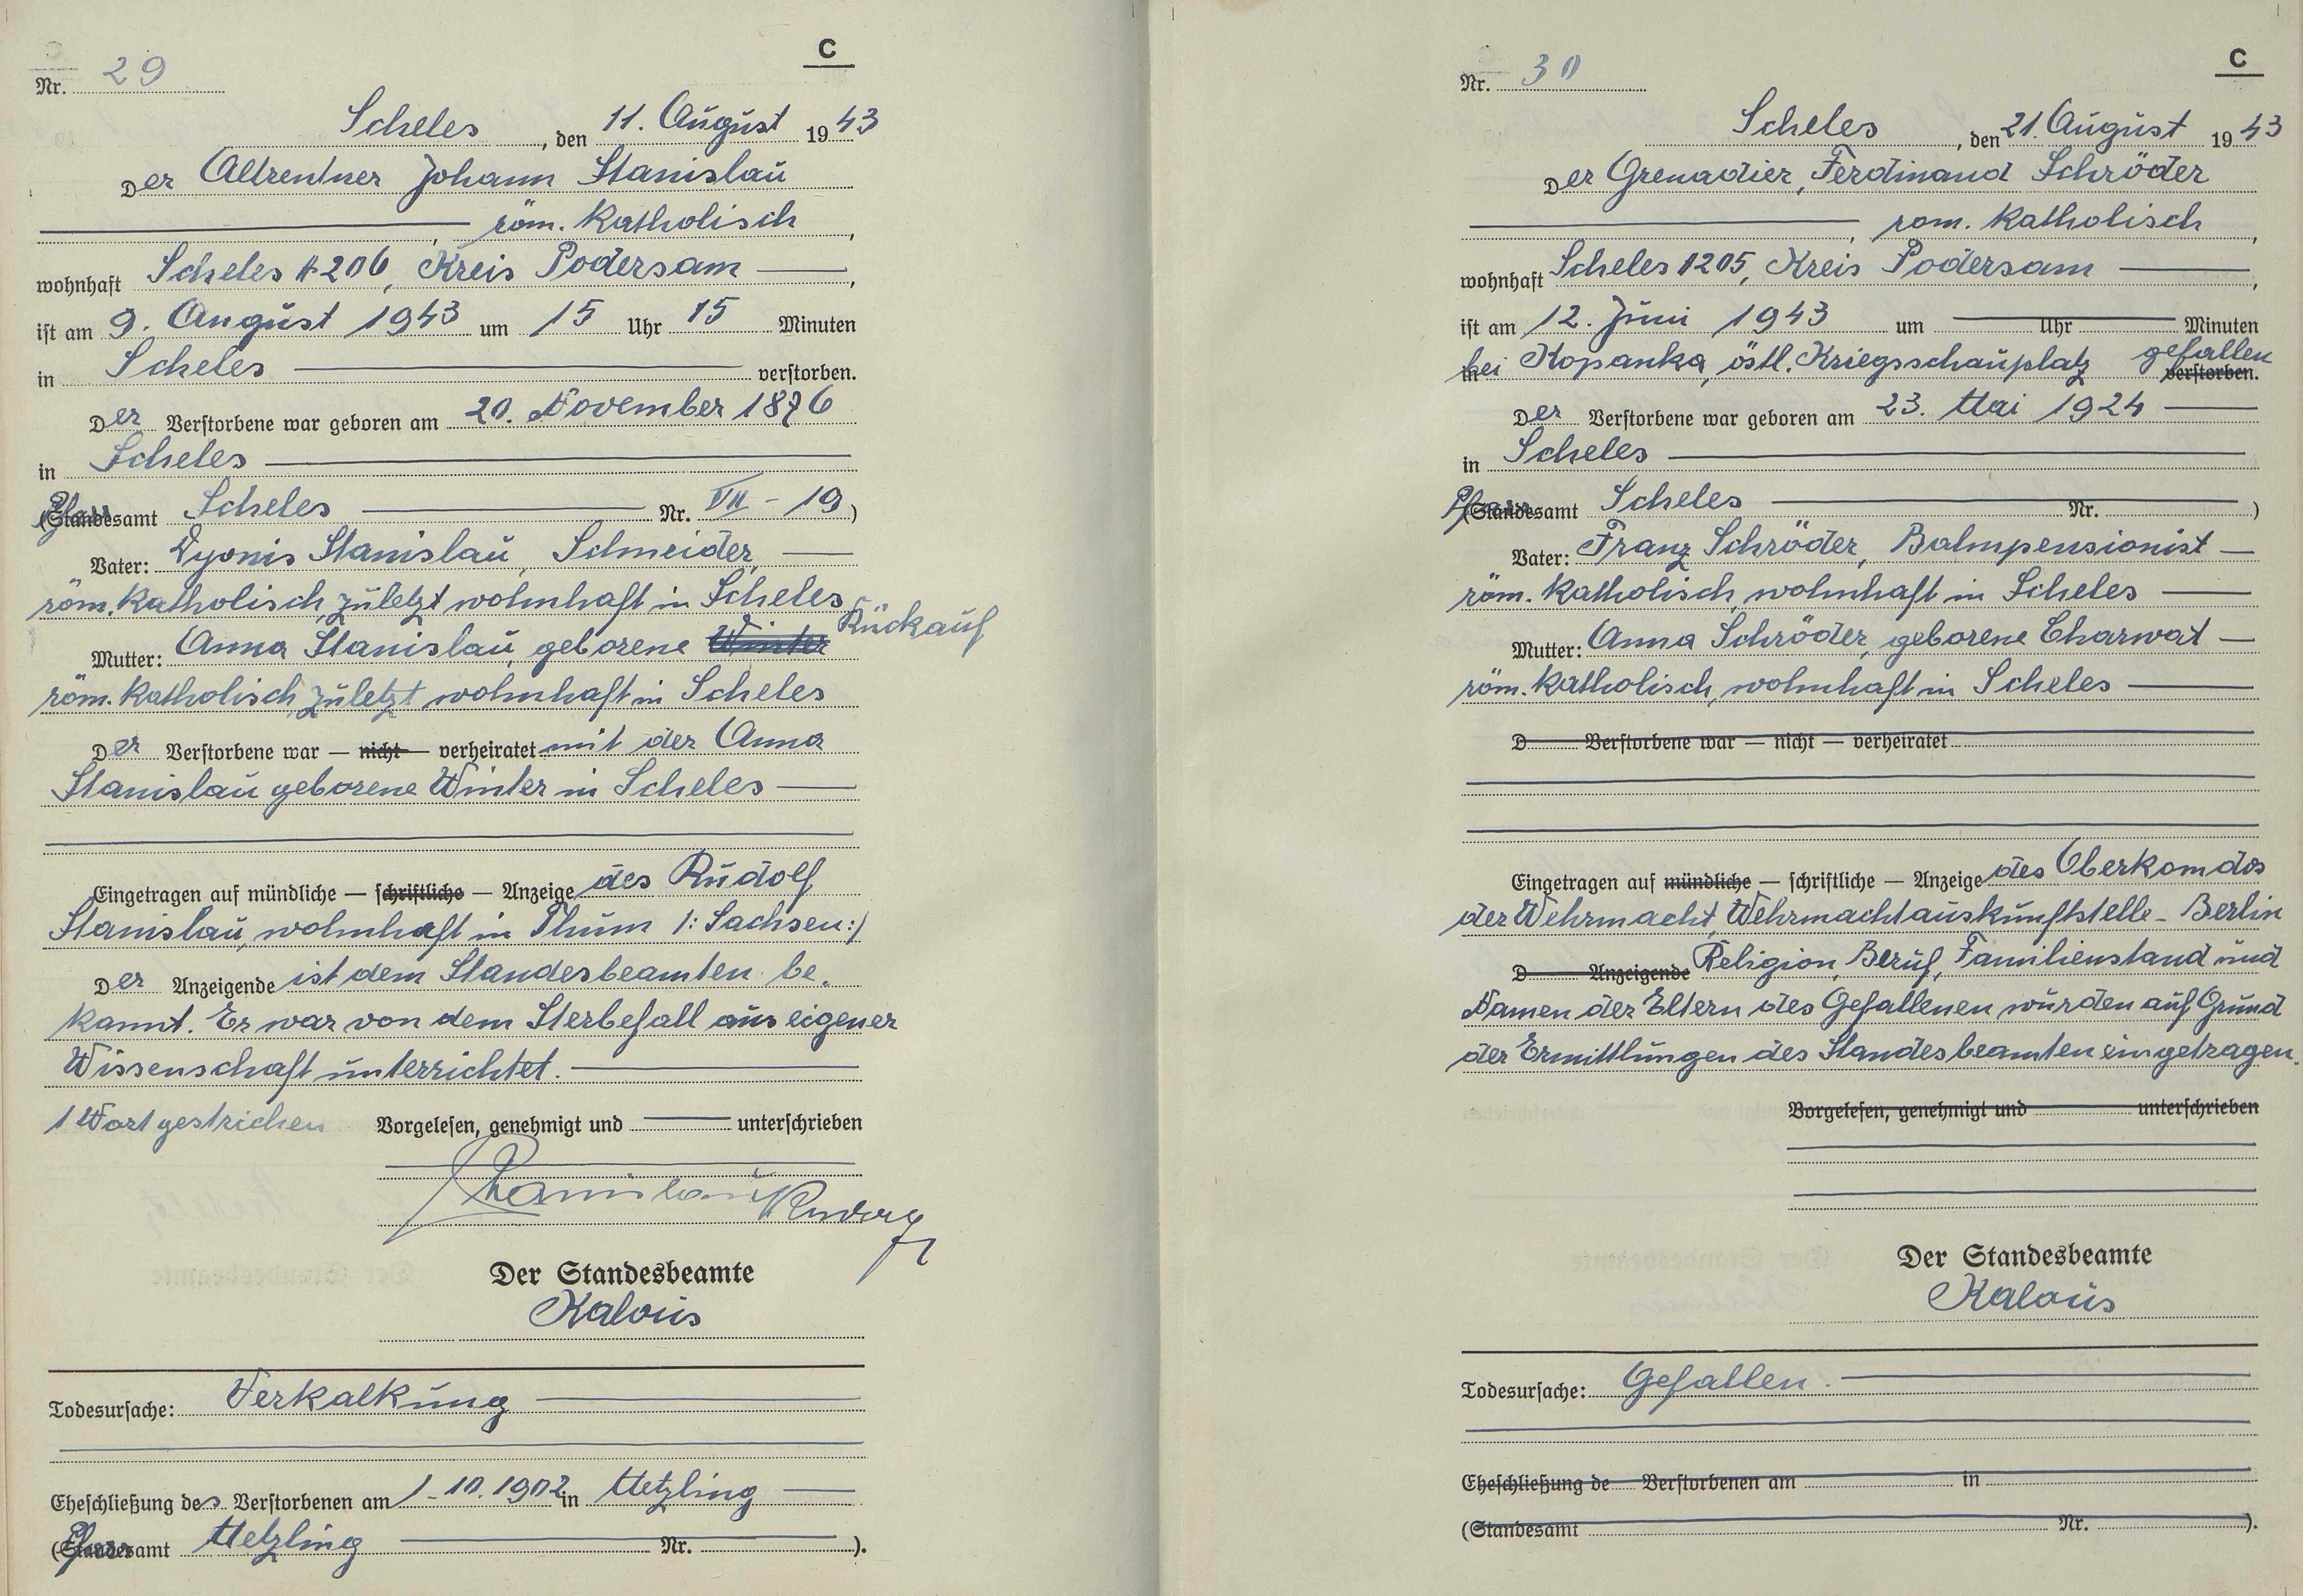 C
Nr. 29
Scheles, den 11. August 1943
Der Altrentner Johann Stanislau
röm. katholisch,
wohnhaft Scheles # 206, Kreis Podersam,
ist am 9. August 1943 um 15 Uhr 15 Minuten
in Scheles verstorben.
Der Verstorbene war geboren am 20. November 1876
in Scheles
(Pfarramt Scheles Nr. VII - 19)
Vater: Dyonis Stanislau, Schneider,
röm. katholisch, zuletzt wohnhaft in Scheles
Mutter: Anna Stanislau, geborene Winter Rückauf
röm. katholisch, zuletzt wohnhaft in Scheles
Der Verstorbene war — nicht — verheiratet mit der Anna
Stanislau geborene Winter in Scheles
Eingetragen auf mündliche — schriftliche — Anzeige des Rudolf
Stanislau, wohnhaft in Thum /: Sachsen :/
Der Anzeigende ist dem Standesbeamten be-
kannt. Er war von dem Sterbefall aus eigener
Wissenschaft unterrichtet.
1 Wort gestrichen Vorgelesen, genehmigt und unterschrieben
Stanislau Rudolf
Der Standesbeamte
Kalous
Todesursache: Verkalkung
Eheschließung des Verstorbenen am 1. 10. 1902 in Metzling
(Pfarramt Metzling Nr. ).
C
Nr. 30
Scheles, den 21. August 1943
Der Grenadier, Ferdinand Schröder
, röm. katholisch,
wohnhaft Scheles # 205, Kreis Podersam,
ist am 12. Juni 1943 um Uhr Minuten
in bei Kopanka, östl. Kriegsschauplatz gefallen verstorben.
Der Verstorbene war geboren am 23. Mai 1924
in Scheles
(Pfarramt Scheles Nr. )
Vater: Franz Schröder, Bahnpensionist
röm. katholisch, wohnhaft in Scheles
Mutter: Anna Schröder, geborene Charwat
röm. katholisch, wohnhaft in Scheles
D Verstorbene war — nicht — verheiratet
Eingetragen auf mündliche — schriftliche — Anzeige des Oberkomdos
der Wehrmacht, Wehrmachtauskunftstelle - Berlin
D Anzeigende Religion, Beruf, Familienstand und
Namen der Eltern des Gefallenen wurden auf Grund
der Ermittlungen des Standesbeamten eingetragen.
Vorgelesen, genehmigt und unterschrieben
Der Standesbeamte
Kalous
Todesursache: Gefallen.
Eheschließung de Verstorbenen am in
(Standesamt Nr. ).